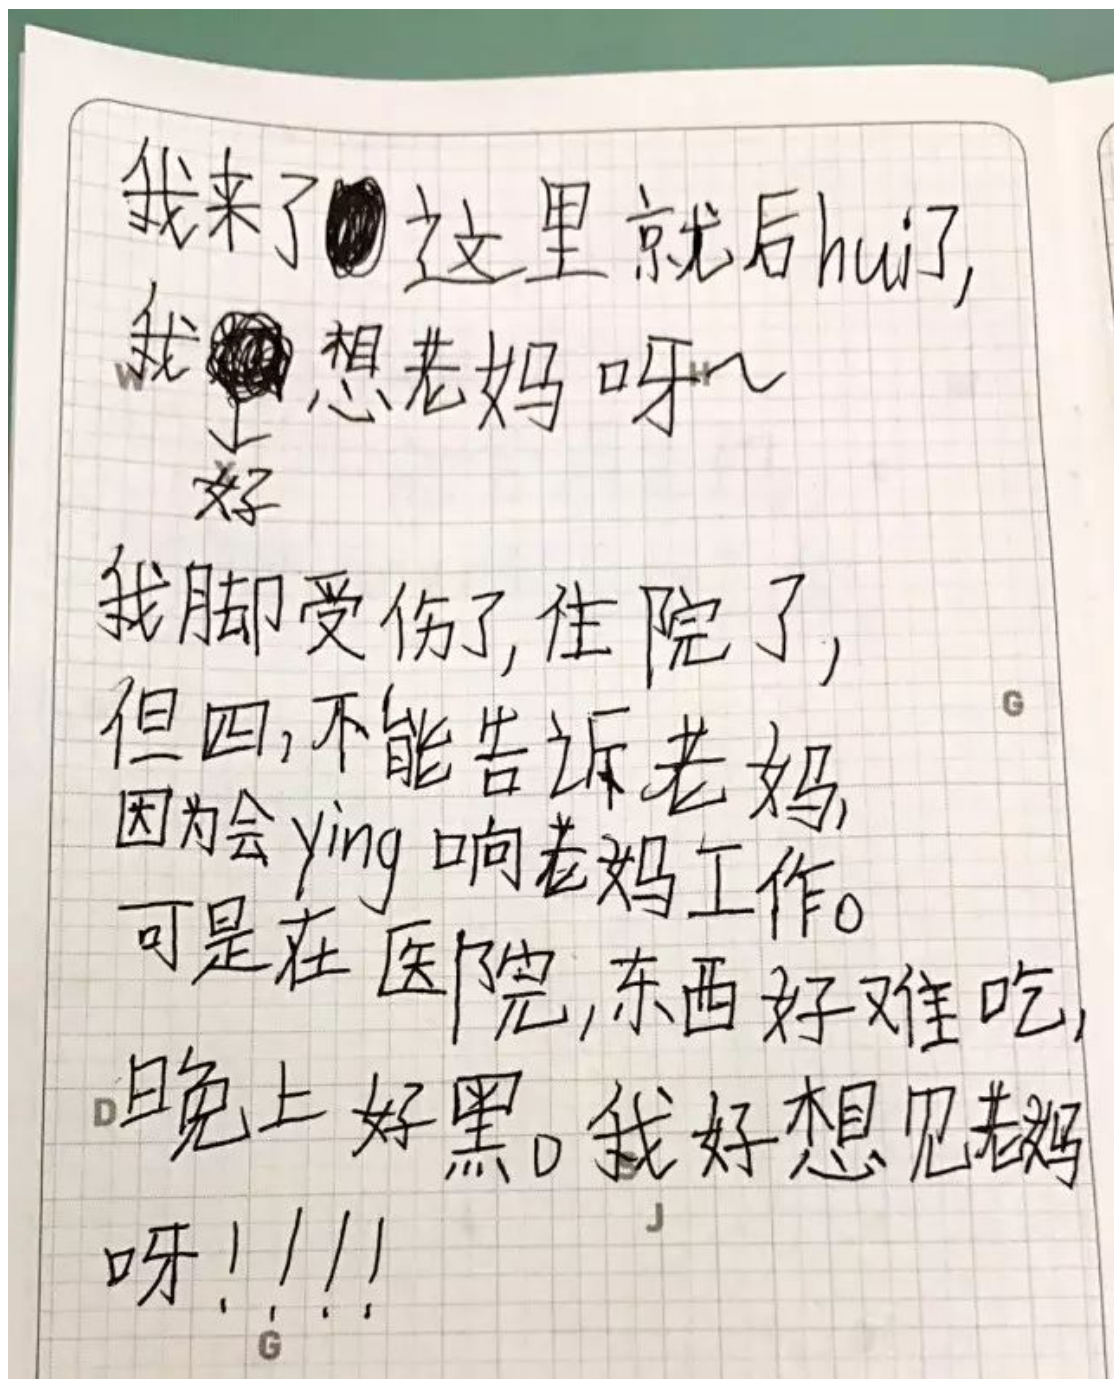 我来了这里就后hui了,
我想老妈呀～
↓
好
我脚受伤了,住院了,
但四,不能告诉老妈,
因为会ying响老妈工作。
可是在医院,东西好难吃,
晚上好黑。我好想见老妈
呀!!!!
W
H
G
D
S
J
G